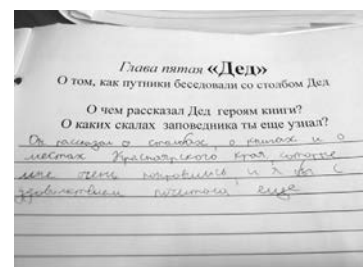 Глава пятая «Дед»
О том, как путники беседовали со столбом Дед
О чем рассказал Дед героям книги?
О каких скалах заповедника ты еще узнал?
Он рассказал о столбах, о книгах и о
местах Красноярского края, которые
мне очень понравились, и я бы с
удовольствием почитала еще